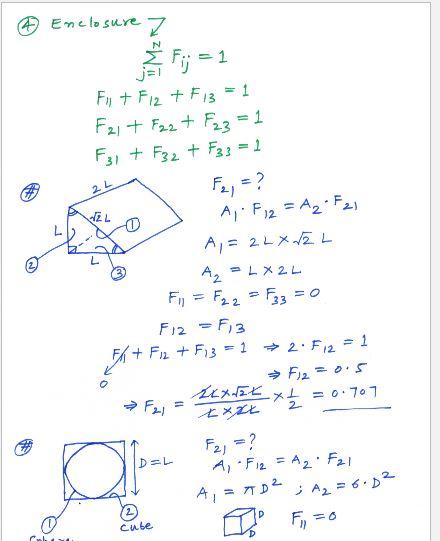 ④ Enclosure
N
Σ Fij = 1
j=1
F11 + F12 + F13 = 1
F21 + F22 + F23 = 1
F31 + F32 + F33 = 1
# 2L F21 = ?
√2 L ① A1 · F12 = A2 · F21
L A1 = 2L × √2 L
② L ③ A2 = L × 2L
F11 = F22 = F33 = 0
F12 = F13
F11 + F12 + F13 = 1 ⇒ 2 · F12 = 1
0 ⇒ F12 = 0.5
⇒ F21 = 2L×√2L / L×2L × 1/2 = 0.707
# F21 = ?
D = L A1 · F12 = A2 · F21
A1 = πD² ; A2 = 6·D²
① ② Cube D D F11 = 0